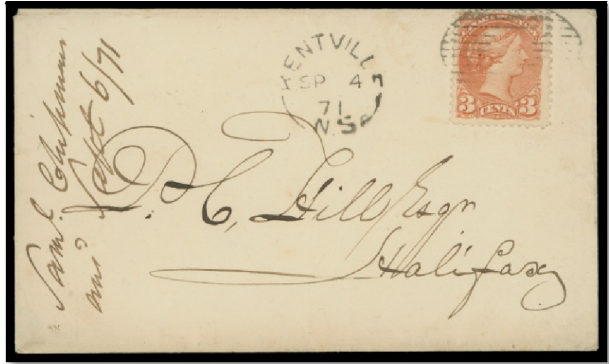 Saml. Chipman
ansd. Sept 6/71
KENTVILLE
SP 4
71
N.S.
3 CENTS 3
P. C. Hill, Esqr
Halifax